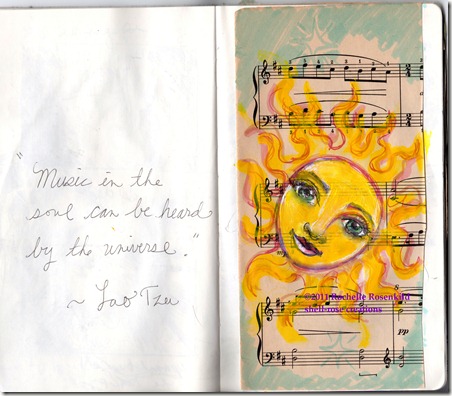 "Music in the
soul can be heard
by the universe."
~ Lao Tzu
©2011 Rochelle
creations
pp